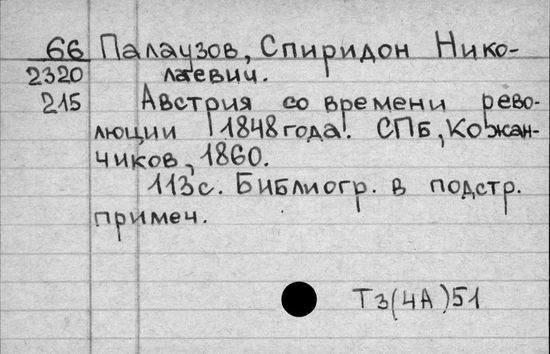 66 Палаузов, Спиридон Нико-
2320 лаевич.
215 Австрия со времени рево-
люции 1848 года. СПб, Кожан-
чиков, 1860.
113 с. Библиогр. в подстр.
примеч.
Т3(4А)51